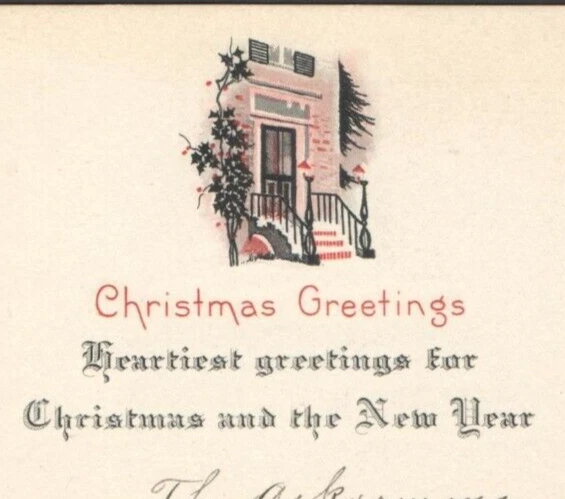 Christmas Greetings
Heartiest greetings for
Christmas and the New Year